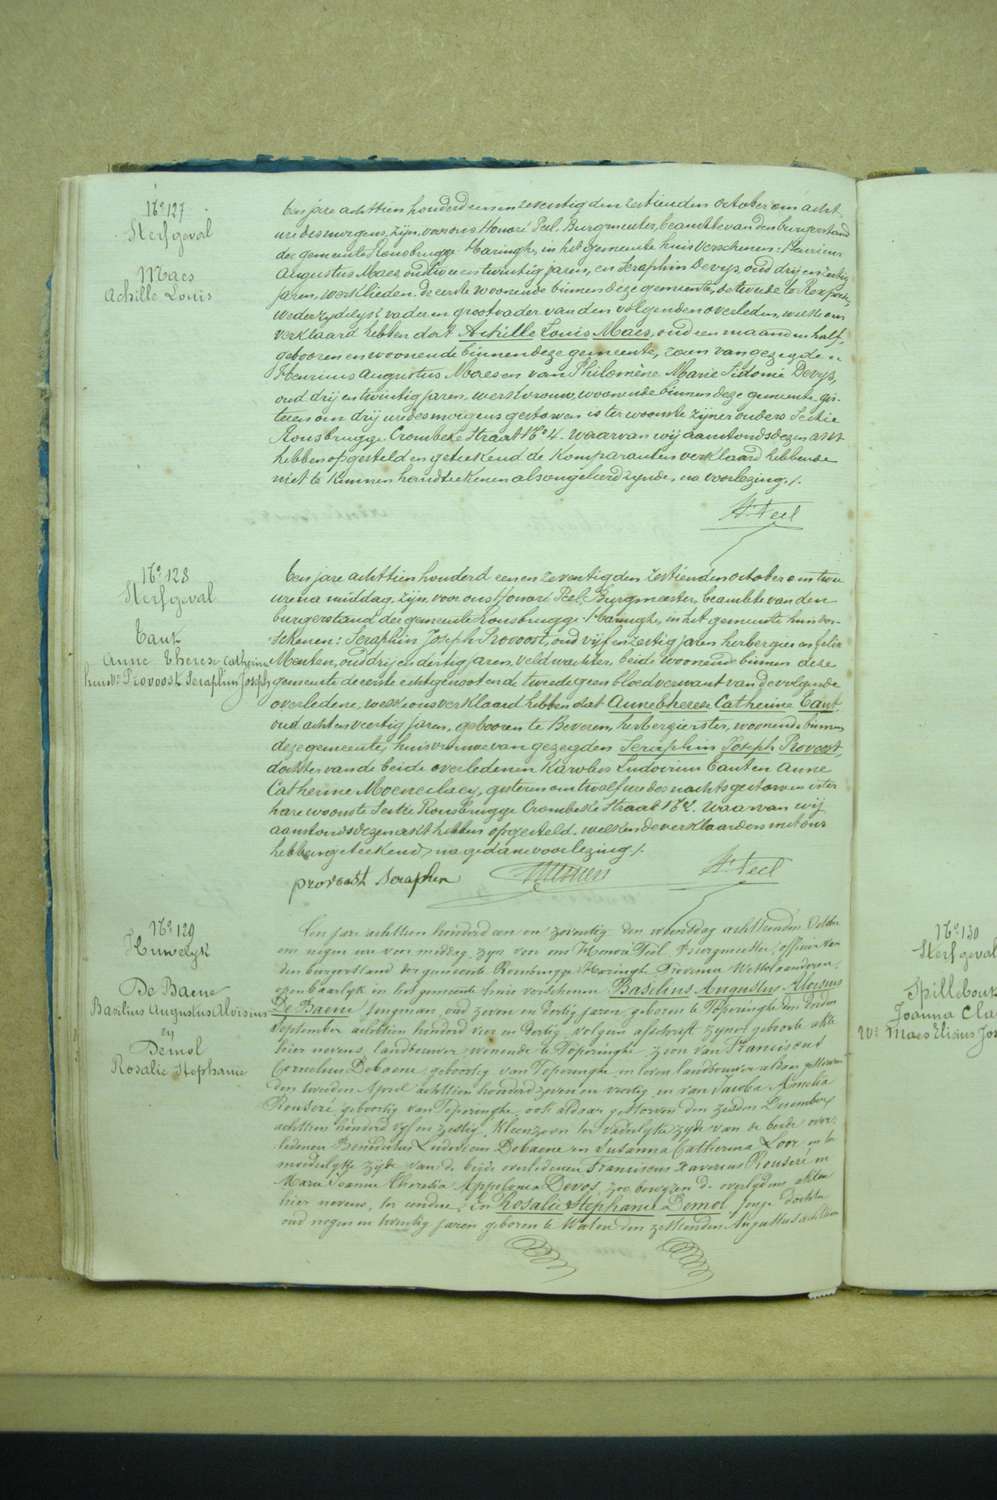 N° 127
Sterfgeval
Maes
Achille Louis
Een jare achttien honderd een en zeventig den zestienden october om acht
ure des morgens, zijn, voor ons Honoré Peel, Burgmeester, beambte van den burgerstand
der gemeente Rousbrugge-Haringhe, in het gemeente huis verschenen: Henricus
Augustus Maes, oud en twintig jaren, en Seraphin Devys, oud drij en zestig
jaren, werklieden, de eerste woonende binnen deze gemeente, de tweede te
wederzydelyk vader en grootvader van den volgenden overleden, welke ons
verklaard hebben dat Achille Louis Maes, oud een maand en half,
gebooren en woonende binnen deze gemeente, zoon van gezegde
Henricus Augustus Maes en van Philomène Marie Sidonie Devys,
oud drij en twintig jaren, werkvrouw, woonende binnen deze gemeente, gis-
teren om drij ure des morgens gestorven is ter woonste zijner ouders Sectie
Rousbrugge Crombeke Straat N° 4. Waarvan wij aanstonds dezen akt
hebben opgesteld en geteekend de komparanten verklaard hebbende
niet te kunnen handteekenen als ongeleerd zynde, na voorlezing /.
H. Peel
N° 128
Sterfgeval
Tant
Anne Therese Catherine
huisv. Provoost Seraphin Joseph
Een jare achttien honderd een en zeventig den zestienden october om twee
uren na middag, zijn, voor ons Honoré Peel, Burgmeester, beambte van den
burgerstand der gemeente Rousbrugge-Haringhe, in het gemeente huis ver-
schenen: Seraphin Joseph Provoost, oud vijf en zestig jaren, herbergier en Felix
Meuten, oud drij en dertig jaren, veldwachter, beide woonende binnen deze
gemeente de eerste echtgenoot en de tweede geen bloedverwant van de volgende
overledene, welke ons verklaard hebben dat Anne Therese Catherine Tant,
oud acht en veertig jaren, gebooren te Beveren, herbergierster, woonende binnen
deze gemeente, huisvrouwe van gezegden Seraphin Joseph Provoost,
dochter van de beide overledenen Karolus Ludovicus Tant en Anne
Catherine Moeneclaey, gisteren om twaalf ure des nachts gestorven is ter
hare woonste Sectie Rousbrugge Crombeke Straat Waarvan wij
aanstonds dezen akt hebben opgesteld, welken de verklaarders met ons
hebben geteekend, na gedane voorlezing /.
provoost Seraphin
H. Peel
N° 129
Huwelyk
De Baene
Basilius Augustus Aloïsius
en
Demol
Rosalie Stephanie
Een jare achttien honderd een en zeventig den woensdag achttienden October
om negen ure voor middag, zyn voor ons Honoré Peel Burgmeester, officier van
den burgerstand der gemeente Rousbrugge-Haringhe Provincie Westvlaanderen,
openbaarlyk in het gemeente huis verschenen Basilius Augustus Aloïsius
De Baene jongman, oud zeven en dertig jaren geboren te Poperinghe den
September achttien honderd vier en dertig volgens afschrift zynes geboorte akte
hier nevens, landbouwer, wonende te Poperinghe, zoon van Franciscus
Cornelius Debaene geboortig van Poperinghe in leven landbouwer aldaar gestorven
den tweeden April achttien honderd zeven en veertig en van Jacoba Amelia
Rouseré geboortig van Poperinghe ook aldaar gestorven den zesden December
achttien honderd vyf en zestig, kleinzoon ter vaderlyke zyde van de beide over-
ledenen Benedictus Ludovicus Debaene en Susanna Catharina Loor, en te
moederlyke zyde van de beyde overledenen Franciscus Xaverius Rouseré en
Maria Joanna Theresia Appolonia Devos, zoo bewezen de overlydens akten
hier nevens, ter eendre; En Rosalie Stephanie Demol jonge dochter
oud negen en twintig jaren geboren te Watou den zestienden Augustus achttien
N° 130
Sterfgeval
Spillebout
Joanna Cla
We Maes Elisius Jos